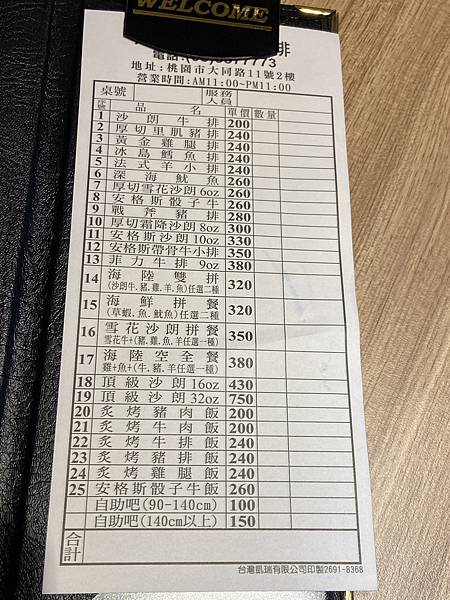 WELCOME
排
地址:桃園市大同路11號2樓
營業時間:AM11:00~PM11:00
桌號 服務人員
序號 品名 單價 數量
1 沙朗牛排 200
2 厚切里肌豬排 240
3 黃金雞腿排 240
4 冰島鱈魚排 240
5 法式羊小排 240
6 深海魷魚 260
7 厚切雪花沙朗6oz 260
8 安格斯骰子牛 260
9 戰斧豬排 280
10 厚切霜降沙朗8oz 300
11 安格斯沙朗10oz 330
12 安格斯帶骨牛小排 350
13 菲力牛排 9oz 380
14 海陸雙拼 320
(沙朗牛.豬.雞.羊.魚)任選二種
15 海鮮拼餐 320
(草蝦.魚.魷魚)任選二種
16 雪花沙朗拼餐 350
雪花牛+(豬.雞.魚.羊任選一種)
17 海陸空全餐 380
雞+魚+(牛.豬.羊任選一種)
18 頂級沙朗16oz 430
19 頂級沙朗32oz 750
20 炙烤豬肉飯 200
21 炙烤牛肉飯 200
22 炙烤牛排飯 240
23 炙烤豬排飯 240
24 炙烤雞腿飯 240
25 安格斯骰子牛飯 260
自助吧(90-140cm) 100
自助吧(140cm以上) 150
合計
台灣凱瑞有限公司印製2691-8368